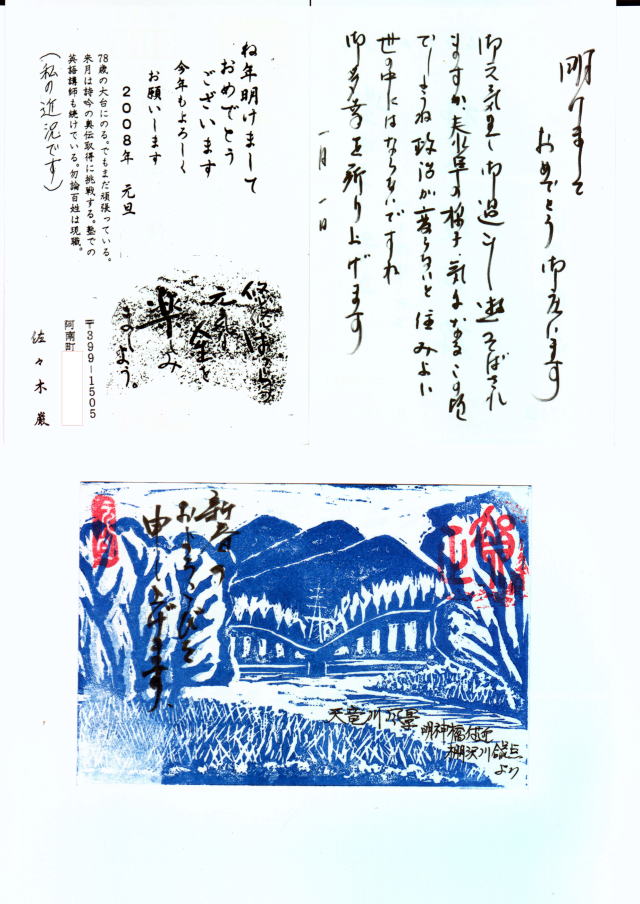 明けまして
おめでとう 御座います
御元気で 御過ごし 遊そばされ
ますか、
でしょうね 政治が変らないと 住みよい
世の中にはならないですね
御多幸を祈り上げます
一月一日
ね年明けまして
おめでとう
ございます
今年もよろしく
お願いします
2008年 元旦
78歳の大台にのる。でもまだ頑張っている。
来月は詩吟の奥伝取得に挑戦する。塾での
英語講師も続けている。勿論百姓は現職。
(私の近況です)
元気
人生を
楽しみ
ましょう。
〒399-1505
阿南町
佐々木 巌
新春の
およろこびを
申し上げます、
天竜川風景
明神橋付近
棚沢川合流点
より